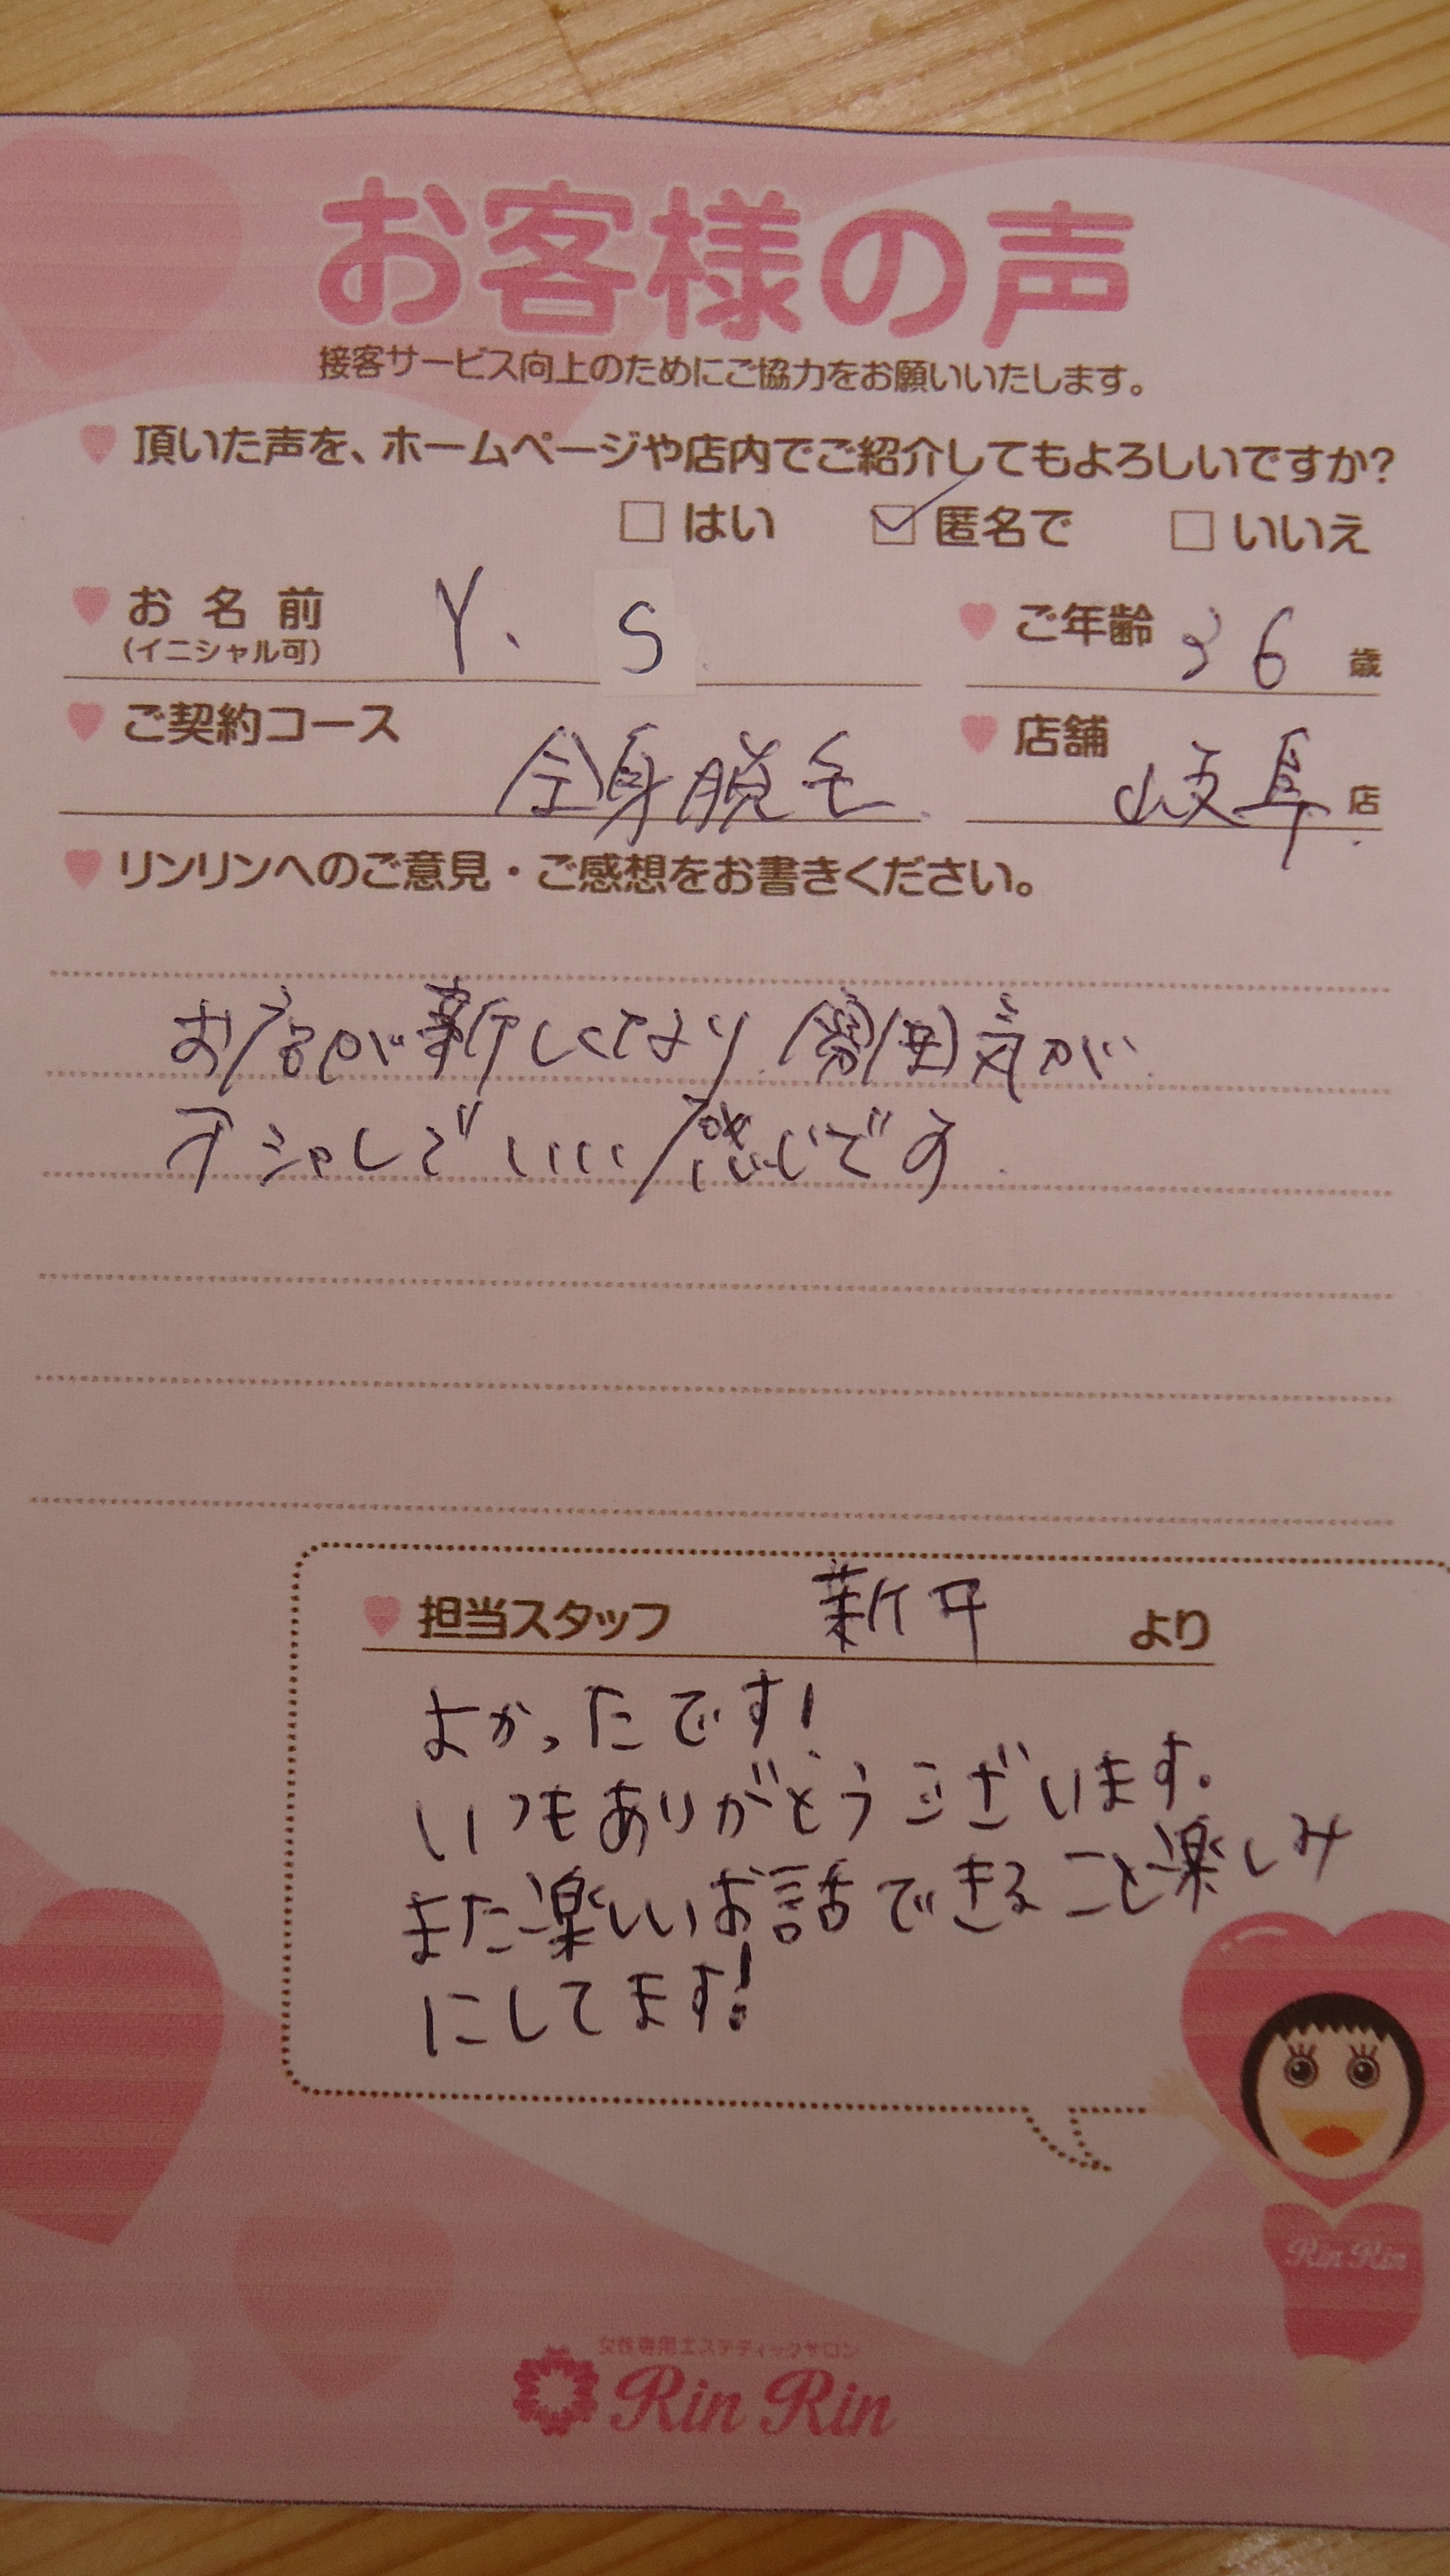 お客様の声
接客サービス向上のためにご協力をお願いいたします。
頂いた声を、ホームページや店内でご紹介してもよろしいですか?
はい 匿名で いいえ
お名前 Y、S ご年齢 36 歳
(イニシャル可)
ご契約コース 全身脱毛 店舗 岐阜 店
リンリンへのご意見・ご感想をお書きください。
お店が新しくなり雰囲気が
オシャレでいい感じです
担当スタッフ より
よかったです!
いつもありがとうございます。
また楽しいお話できること楽しみ
にしてます!
Rin Rin
女性専用エステティックサロン
Rin Rin